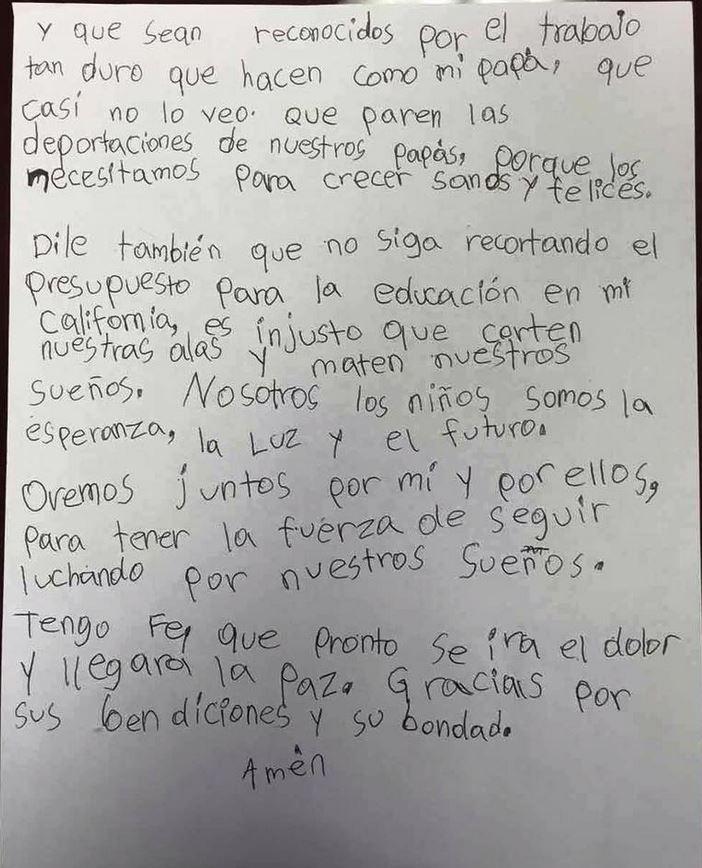 y que sean reconocidos por el trabajo
tan duro que hacen como mi papá, que
casí no lo veo. Que paren las
deportaciones de nuestros papás, porque los
necesitamos para crecer sanos y felices.
Dile también que no siga recortando el
presupuesto para la educación en mi
California, es injusto que corten
nuestras alas y maten nuestros
sueños. Nosotros los niños somos la
esperanza, la Luz y el futuro.
Oremos juntos por mí y por ellos,
para tener la fuerza de seguir
luchando por nuestros sueños.
Tengo Fe, que pronto se ira el dolor
y llegara la Paz. Gracias por
sus bendiciones y su bondad.
Amén